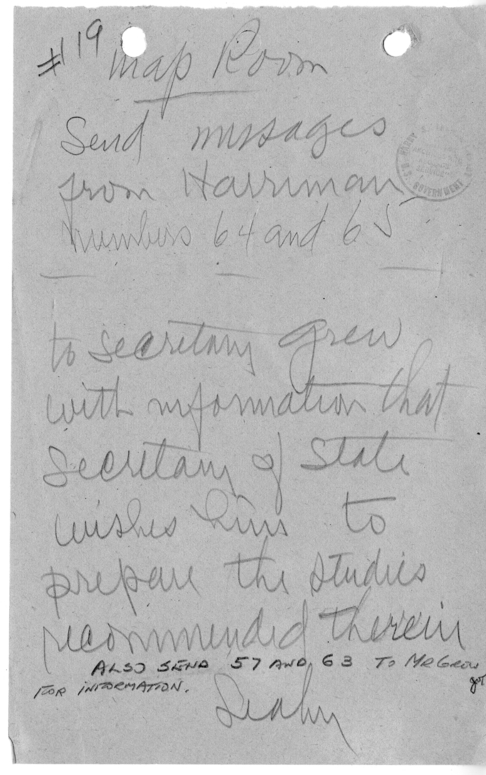 #119
Map Room
Send messages
from Harriman
numbers 64 and 65
to Secretary Grew
with information that
Secretary of State
wishes him to
prepare the studies
recommended therein
ALSO SEND 57 AND 63 TO MR GREW
FOR INFORMATION.
Leahy